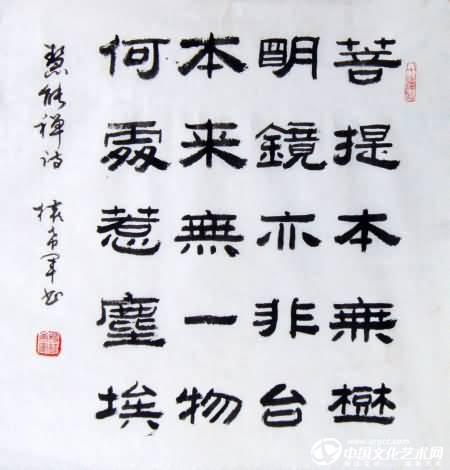 菩提本無樹
明鏡亦非台
本来無一物
何處惹塵埃
慧能禅诗 希军书
中国文化艺术网
www.orgcc.com